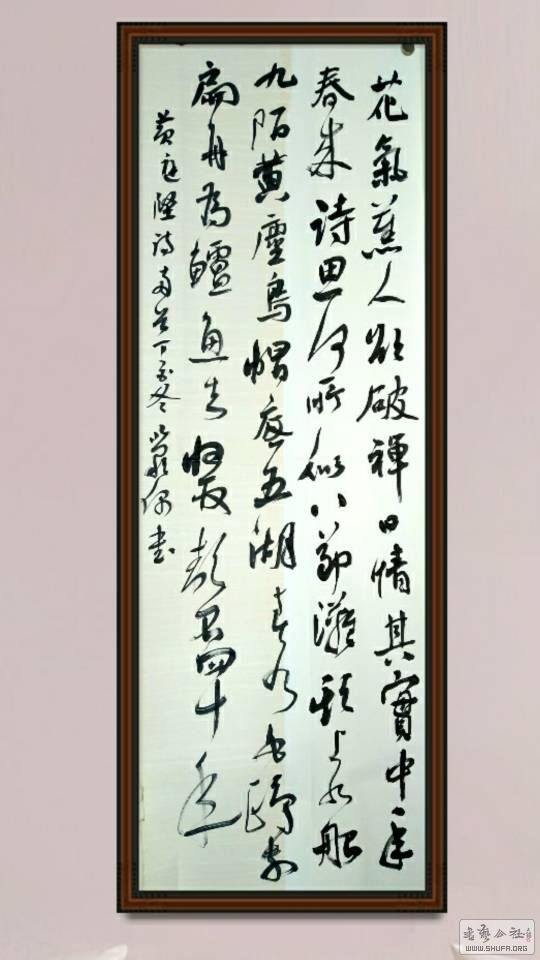 花氣薰人欲破禪心情其實中年
春来诗思何所似八節灘頭上水船
九陌黄塵烏帽底五湖春水白鷗前
扁舟為鱸魚去收取聲名四十年
黄庭堅詩兩首丁酉冬書
书艺公社
WWW.SHUFA.ORG